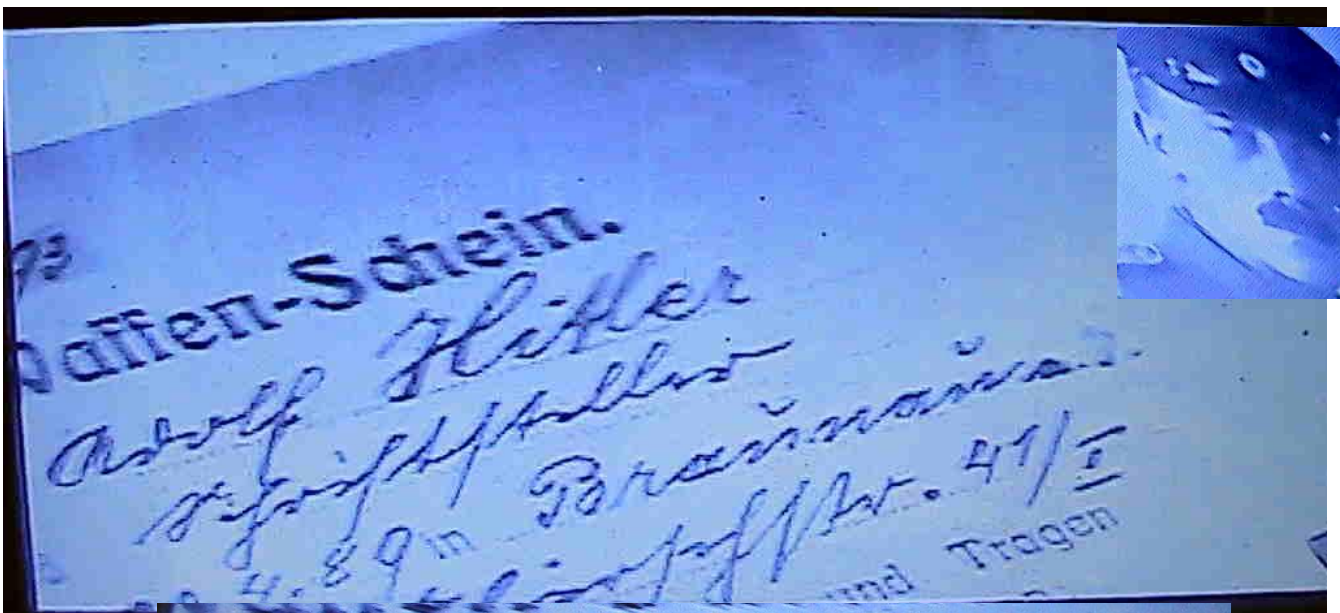 Waffen-Schein.
Adolf Hitler
Schriftsteller
4.89 in Braunau a. I.
41/I
und Tragen